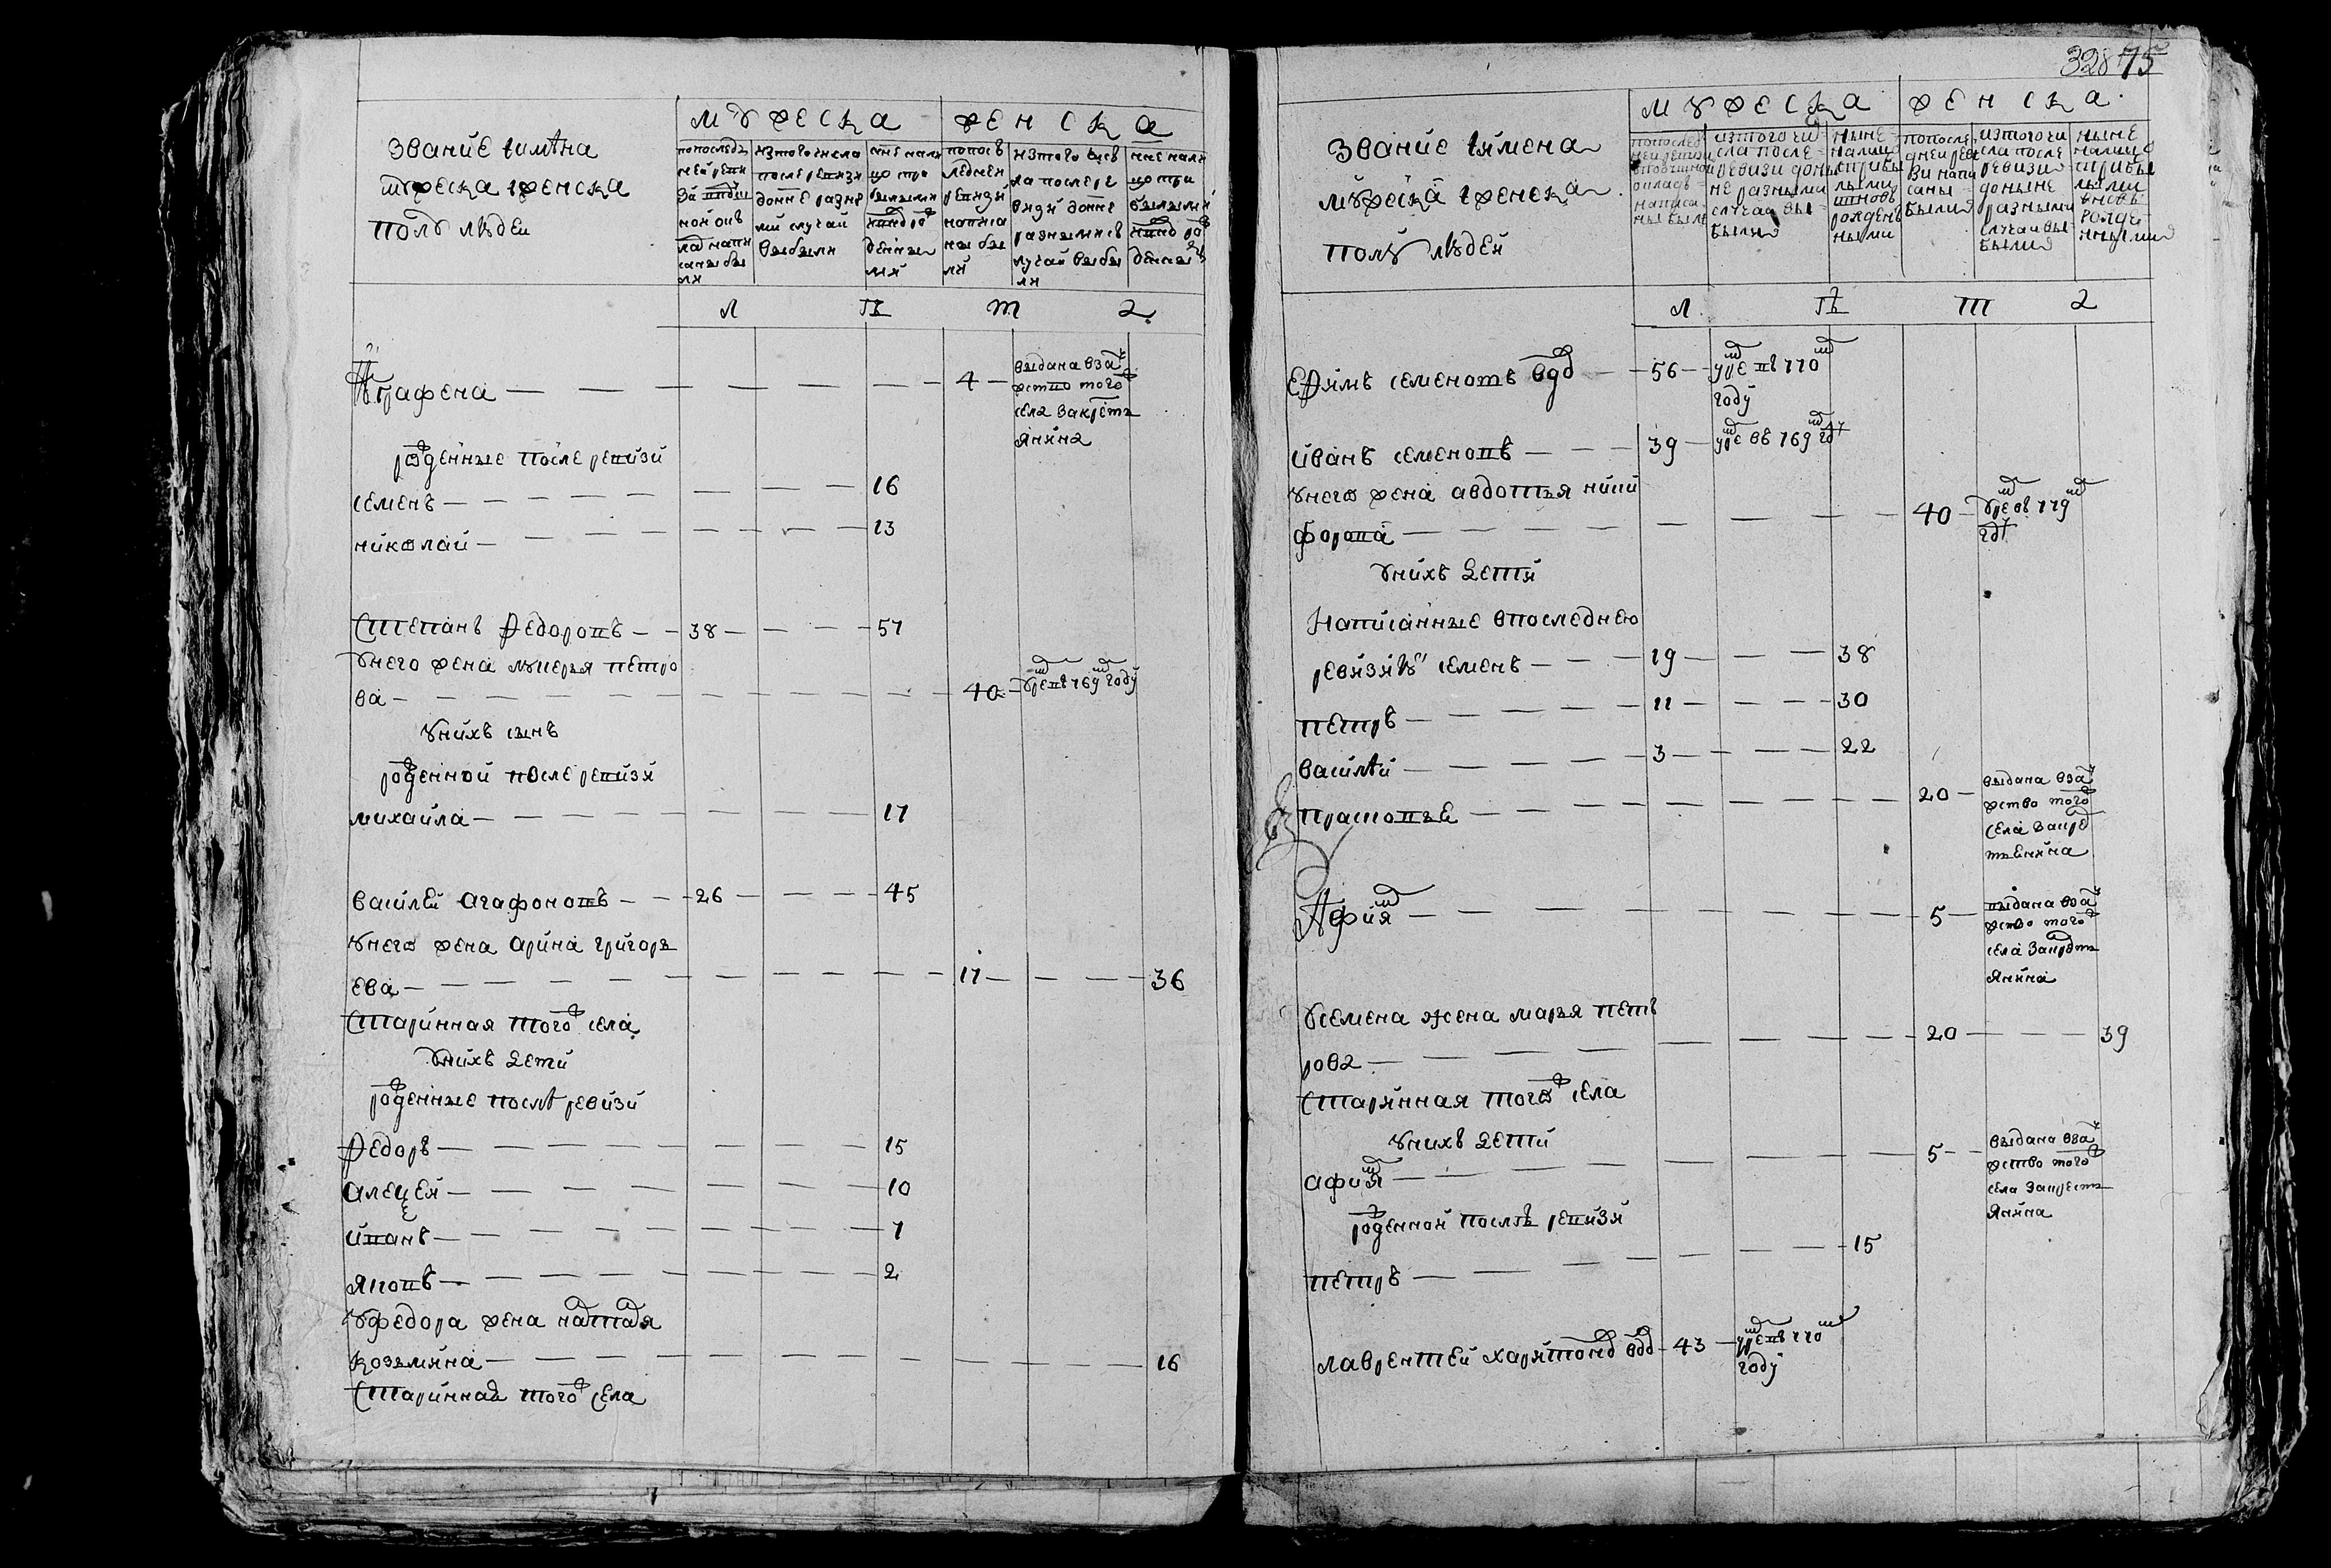 звание и имѣна
мужеска и женска
полу людеи
мужеска
женска
попослѣд
ней реви
зи подуш
ной окъ
лад напи
саны бы
ли
ис того числа
после ревизи
до нне разны
ми случаи
выбыли
нне нали
цо при
былыми
и внов ро
денны
ми
по посъ
ледней
ревизи
написа
ны бы
ли
из того чис
ла после ре
визи до нне
разными с
лучаи выбы
ли
нне нали
цо при
былыми
и внов ро
денны
л ѣ т а
Аграфена — 4 — выдана в за
мужество того
села за кресть
янина
роженные после ревизи
семенъ — 16
николай — 13
Степанъ Федоровъ — 38 — 57
у него жена лукерья петро
ва — 40 — умре в 769 году
у них сынъ
роженной после ревизи
михайла — 17
василей агафоновъ — 26 — 45
у него жена арина григорь
ева — 17 — 36
старинная того села
у них дети
роженные послѣ ревизи
Федоръ — 15
алексей — 10
иванъ — 7
яковъ — 2
у федора жена наталья
козьмина — 16
старинная того села
328 75
звание и имена
мужеска и женска
полу людей
мужеска
женска
по послед
ней ревизи
в подушной
окладъ
написа
ны были
из того чи
сла после
ревизи до ны
не разными
случаи вы
были
ныне
налицо
с прибы
лыми
и вновь
рожден
ными
по после
дней реви
зи напи
саны
были
из того чи
сла после
ревизи
до ныне
разными
случаи вы
были
ныне
налицо
с прибы
лыми
и вновь
рожде
нными
л ѣ т а
Ефимъ семеновъ вдв — 56 — умре в 770
году
иванъ семеновъ — 39 — умре въ 769 гд
у него жена авдотья ники
форова — 40 — умре въ 779
гд
у нихъ дети
написанные в последнею
ревизию семенъ — 19 — 38
петръ — 11 — 30
василѣй — 3 — 22
прасковье — 20 — выдана в за
мужство того
села за кре
стьенина
Афимя — 5 — выдана в за
мужство того
села за кресть
янина
у семена жена марья петъ
рова — 20 — 39
старинная того села
у нихъ дети
афимя — 5 — выдана в за
мужство того
села за кресть
янина
роженной послѣ ревизи
петръ — 15
лаврентей харитонов вдв — 43 — умре в 770
году